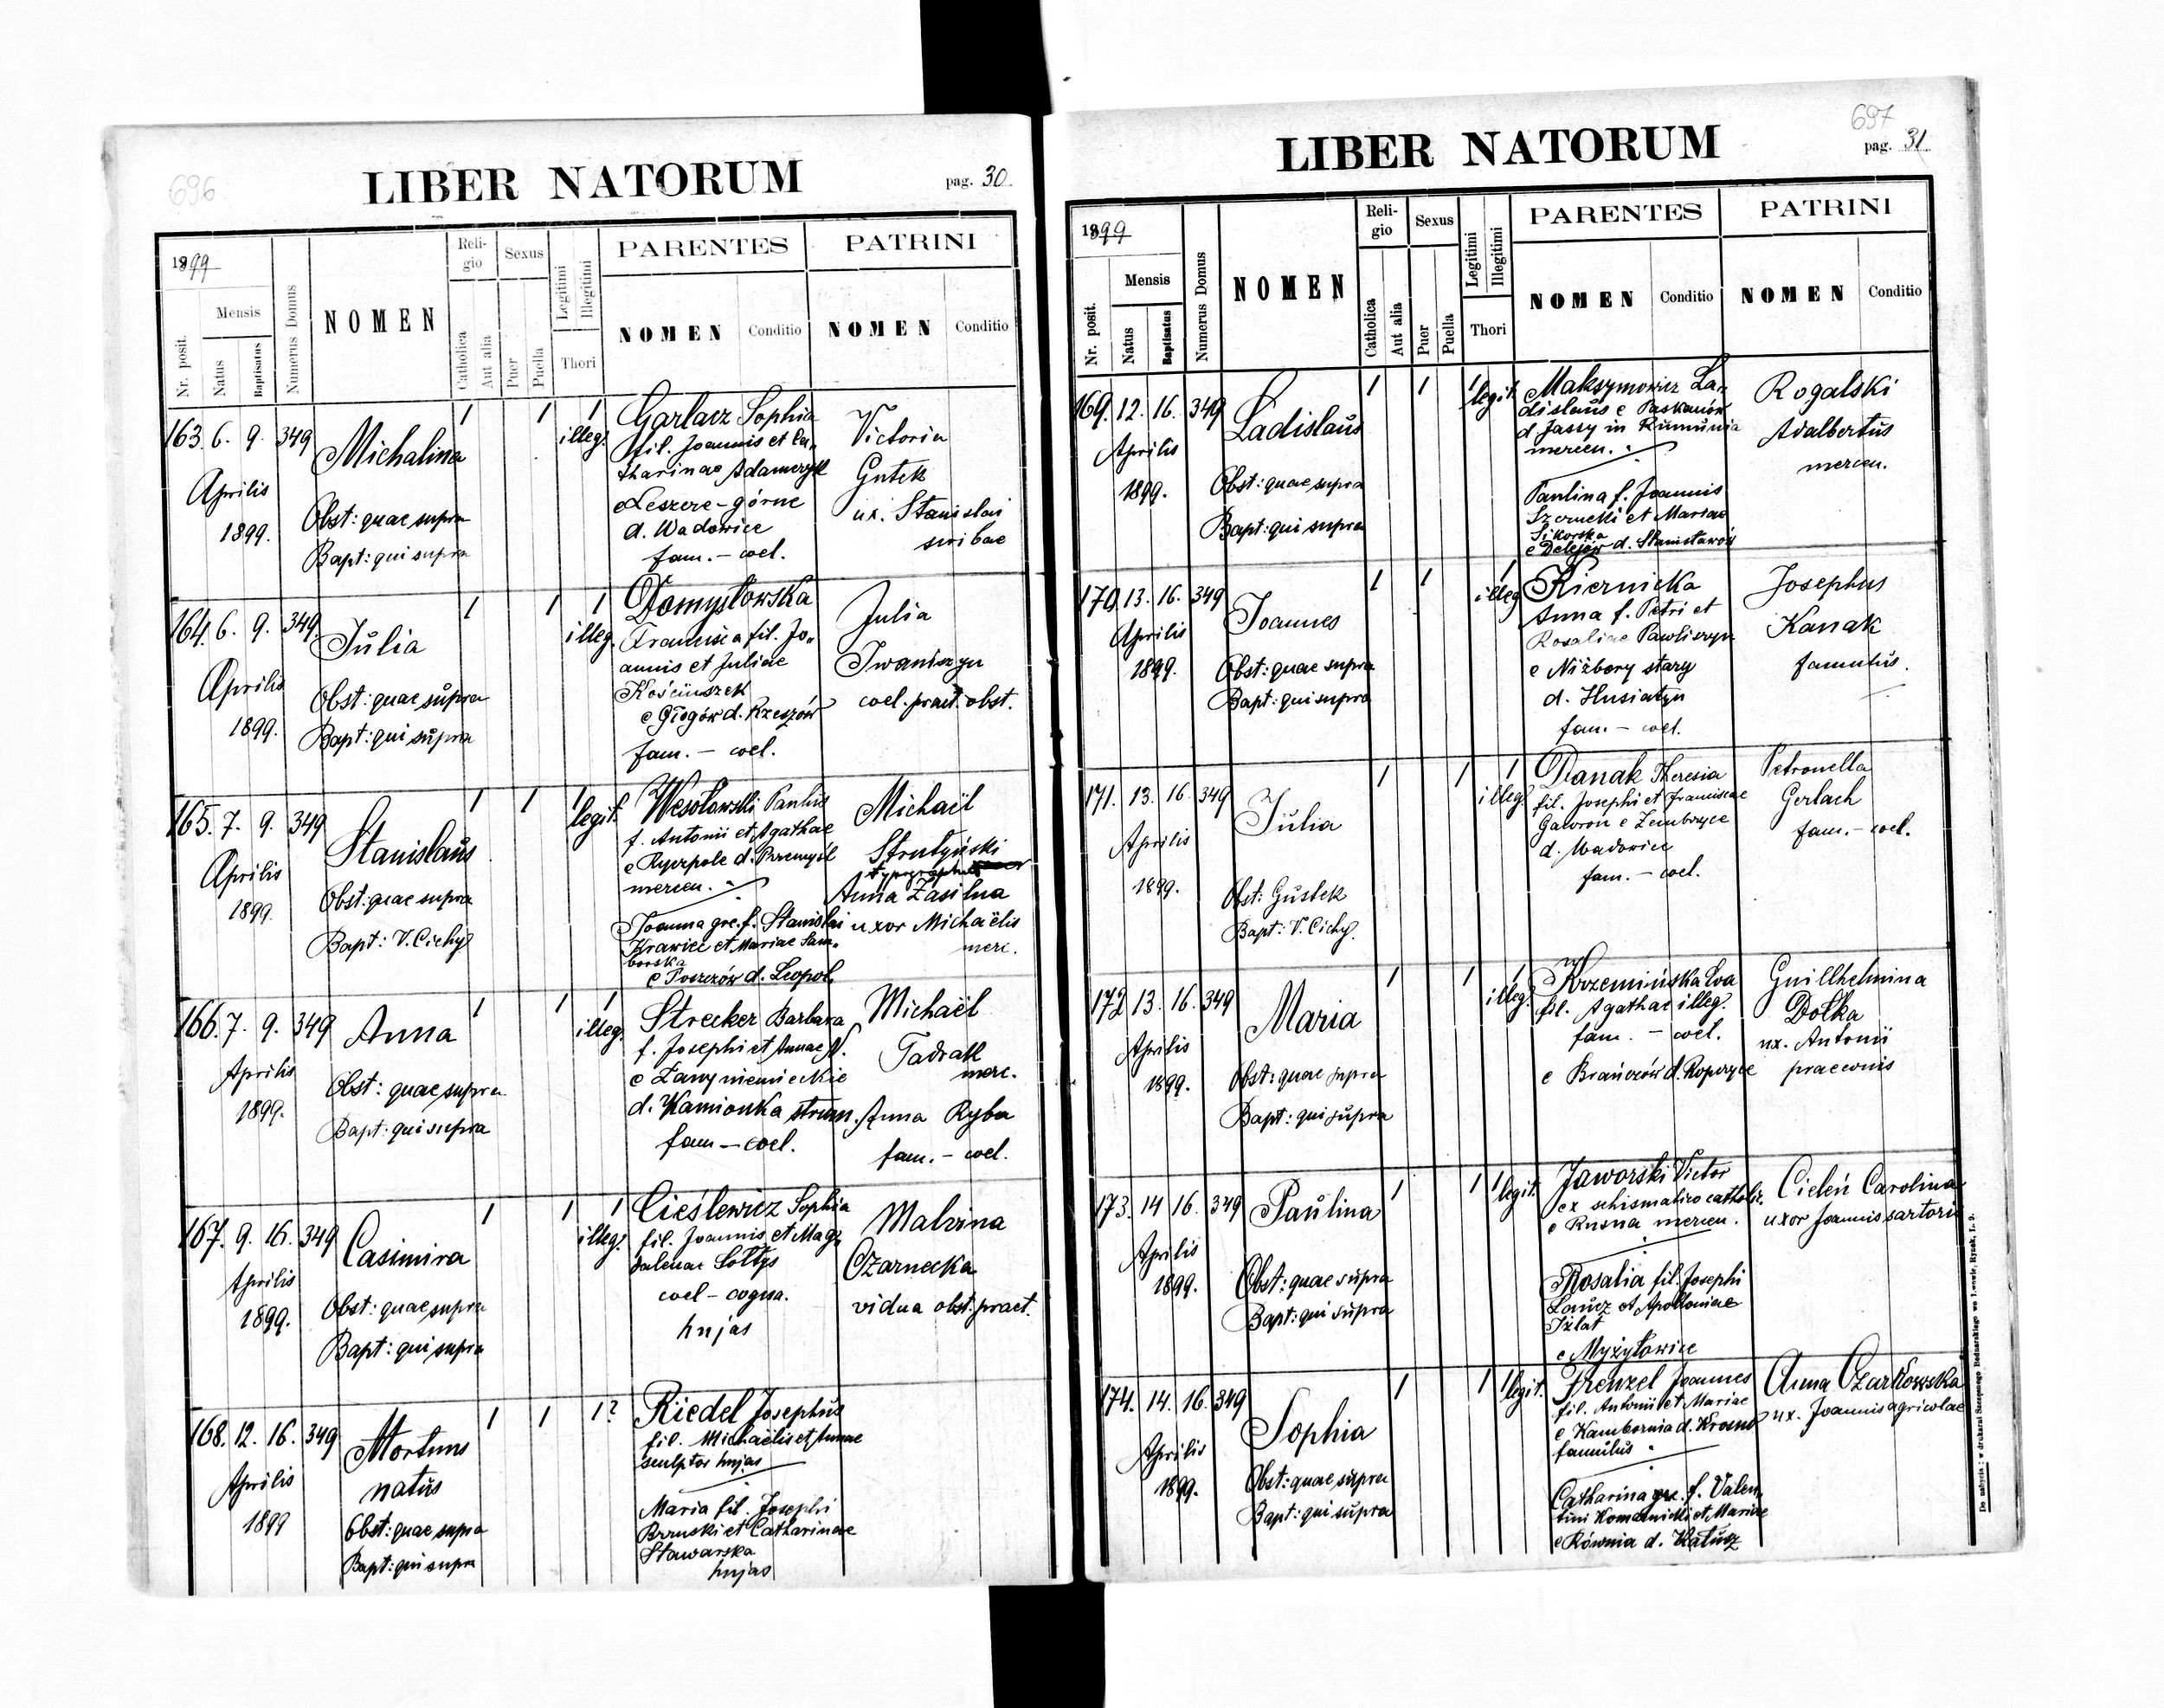 696
LIBER NATORUM
pag. 30.
1899
Nr. posit.
Mensis
Natus
Baptisatus
Numerus Domus
NOMEN
Reli-
gio
Catholica
Aut alia
Sexus
Puer
Puella
Legitimi
Illegitimi
Thori
PARENTES
NOMEN
Conditio
PATRINI
NOMEN
Conditio
163. 6. 9. 349
Aprilis
1899.
Michalina
Obst: quae supra
Bapt: qui supra
1 1 1
illeg.
Garlacz Sophia
fil. Joannis et Ca„
tharinae Adamczyk
e Leszcze-górne
d. Wadowice
fam. - coel.
Victoria
Gutek
ux. Stanislai
scribae
164. 6. 9. 349.
Aprilis
1899.
Julia
Obst: quae supra
Bapt: qui supra
1 1 1
illeg.
Domysłowska
Francisca fil. Jo„
annis et Juliae
Kościuszek
e Głogów d. Rzeszów
fam. - coel.
Julia
Iwaniszyn
coel. pract. obst.
165. 7. 9. 349
Aprilis
1899.
Stanislaus
Obst: quae supra
Bapt: V. Cichy
1 1 1
legit.
Wesołowski Paulus
f. Antonii et Agathae
e Rycrpole d. Przemyśl
mercen.
Joanna grc. f. Stanislai
Krawiec et Mariae Sam„
borska
e Poszczów d. Leopol.
Michaël
Strutyński
typographus
Anna Zasilna
uxor Michaëlis
merc.
166. 7. 9. 349
Aprilis
1899.
Anna
Obst: quae supra
Bapt: qui supra
1 1 1
illeg.
Strecker Barbara
f. Josephi et Annae N.
e Łany niemieckie
d. Kamionka strum.
fam - coel.
Michaël
Tadrak
merc.
Anna Ryba
fam. - coel.
167. 9. 16. 349
Aprilis
1899.
Casimira
Obst: quae supra
Bapt: qui supra
1 1 1
illeg.
Cieślewicz Sophia
fil. Joannis et Mag„
dalenae Sołtys
coel - cogna.
hujas
Malvina
Czarnecka
vidua obst. pract.
168. 12. 16. 349
Aprilis
1899
Mortuus
natus
Obst: quae supra
Bapt: qui supra
1 1 1?
Riedel Josephus
fil. Michaëlis et Annae
sculptor hujas
Maria fil. Josephi
Brzuski et Catharinae
Stawarska
hujas
697
LIBER NATORUM
pag. 31
1899
Nr. posit.
Mensis
Natus
Baptisatus
Numerus Domus
NOMEN
Reli-
gio
Catholica
Aut alia
Sexus
Puer
Puella
Legitimi
Illegitimi
Thori
PARENTES
NOMEN
Conditio
PATRINI
NOMEN
Conditio
169. 12. 16. 349
Aprilis
1899.
Ladislaus
Obst: quae supra
Bapt: qui supra
1 1 1
legit.
Maksymowicz La„
dislaus e Paskanów
d. Jassy in Rumunia
mercen.
Paulina f. Joannis
Szernetki et Mariae
Sikorska
e Delejów d. Stanisławów
Rogalski
Adalbertus
mercen.
170. 13. 16. 349
Aprilis
1899.
Joannes
Obst: quae supra
Bapt: qui supra
1 1 1
illeg.
Kiernicka
Anna f. Petri et
Rosaliae Pawliszyn
e Niżbory stary
d. Husiatyn
fam. - coel.
Josephus
Kanak
famulus.
171. 13. 16. 349
Aprilis
1899.
Julia
Obst: Gustek
Bapt: V. Cichy.
1 1 1
illeg.
Danak Theresia
fil. Josephi et Franciscae
Gawron e Zembrzyce
d. Wadowice
fam. - coel.
Petronella
Gerlach
fam. - coel.
172 13. 16. 349
Aprilis
1899.
Maria
Obst: quae supra
Bapt: qui supra
1 1 1
illeg.
Krzemińska Eva
fil. Agathae illeg.
fam. - coel.
e Brańczów d. Ropczyce
Guillhelmina
Dołka
ux. Antonii
praeconis
173. 14 16. 349
Aprilis
1899.
Paulina
Obst: quae supra
Bapt: qui supra
1 1 1
legit.
Jaworski Victor
ex schismatico cathol.
e Rusna mercen.
Rosalia fil. Josephi
Łoucz et Apolloniae
Iżlat
e Myżyłowice
Cieleń Carolina
uxor Joannis sartoris
174. 14. 16. 349
Aprilis
1899.
Sophia
Obst: quae supra
Bapt: qui supra
1 1 1
legit.
Frenzel Joannes
fil. Antonii et Mariae
e Kombornia d. Krosno
famulus
Catharina grc. f. Valen„
tini Komarnicki et Mariae
e Równia d. Kałusz
Anna Czarkowska
ux. Joannis agricolae
Do nabycia: w drukarni Szczęsnego Bednarskiego we Lwowie, Rynek, l. 9.